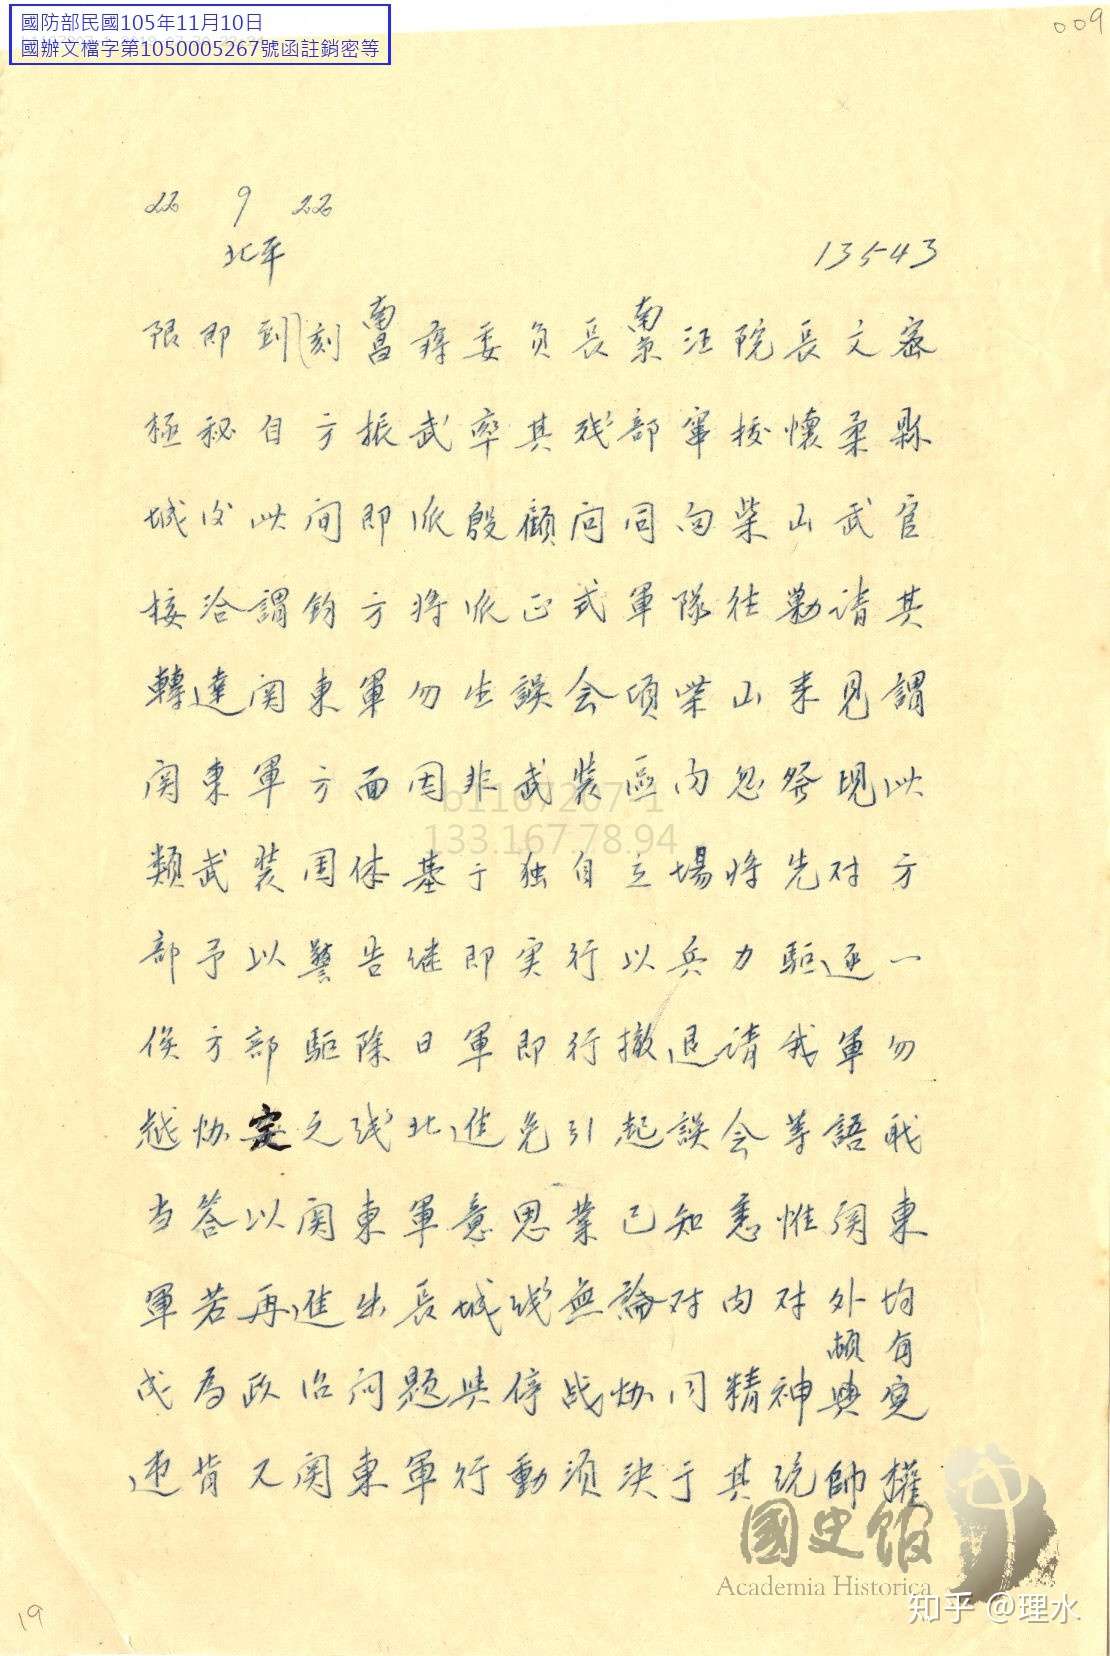 國防部民國105年11月10日
國辦文檔字第1050005267號函註銷密等
009
22 9 22
北平
13543
限即到刻南昌蔣委员長南京汪院長文密
極秘自方振武率其残部竄擾懷柔縣
城后此间即派殷顧问同向柴山武官
接洽謂钧方将派正式軍隊往勦请其
轉達関東軍勿生誤会頃柴山来見謂
関東軍方面因非武装區内忽發現此
類武装団体基于独自立場将先对方
部予以警告继即实行以兵力駆逐一
俟方部駆除日軍即行撤退请我軍勿
越协定之线北進免引起誤会等語職
当答以関東軍意思業已知悉惟関東
軍若再進出長城线無論对内对外均
頗有
成為政治问题與停战协同精神與寔
违背又関東軍行動须决于其统帥權
b1167267-1
133.167.78.94
國史館
Academia Historica
知乎 @理水
19